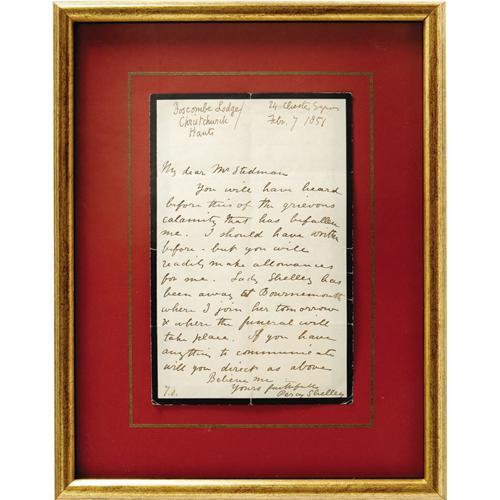 Boscombe Lodge
Christchurch
Hants
24 Chester Square
Feb. 7 1851
My dear Mr Stedman
You will have heard
before this of the grievous
calamity that has befallen
me. I should have written
before - but you will
readily make allowances
for me. Lady Shelley has
been away at Bournemouth
where I join her tomorrow
& where the funeral will
take place. If you have
anything to communicate
will you direct as above
Believe me
Yours faithfully
Percy Shelley